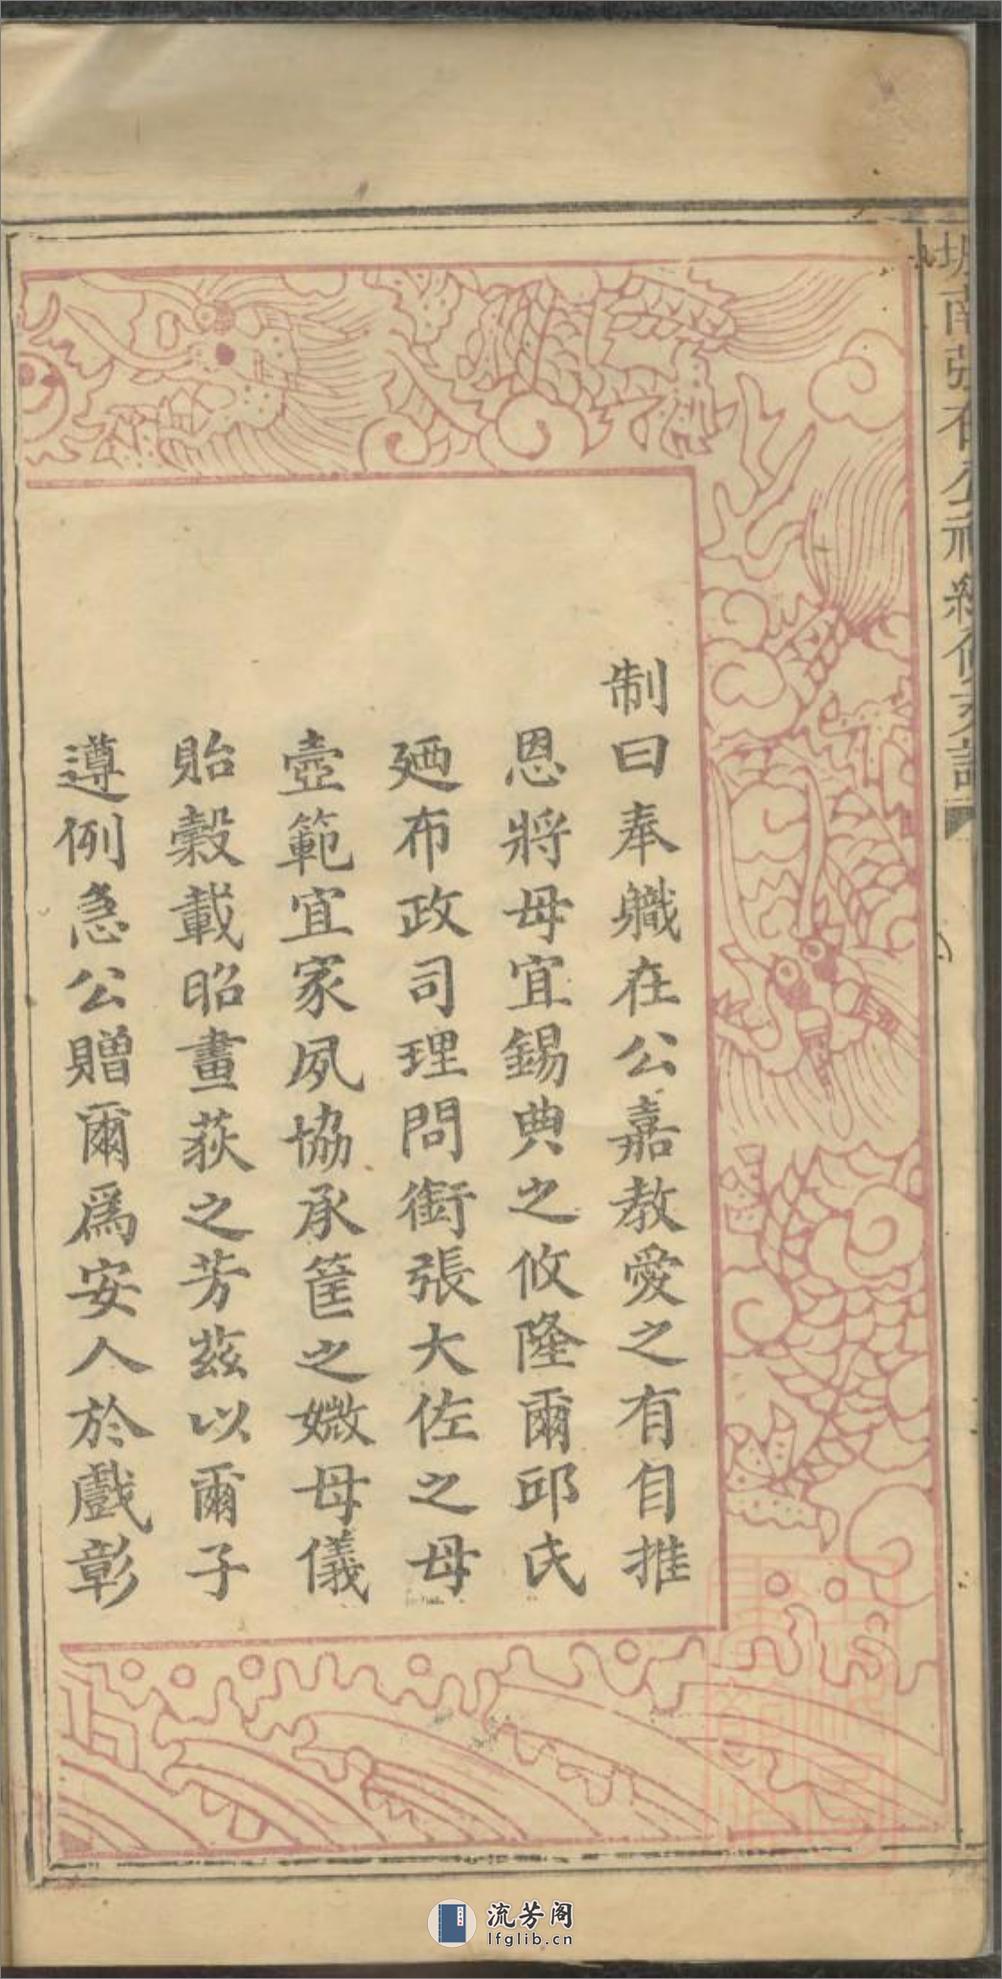 制曰奉職在公嘉教愛之有自推
恩將母宜錫典之攸隆爾邱氏
廼布政司理問銜張大佐之母
壼範宜家夙協承筐之媺母儀
貽穀載昭畫荻之芳茲以爾子
遵例急公贈爾爲安人於戲彰
流芳阁
lfglib.cn